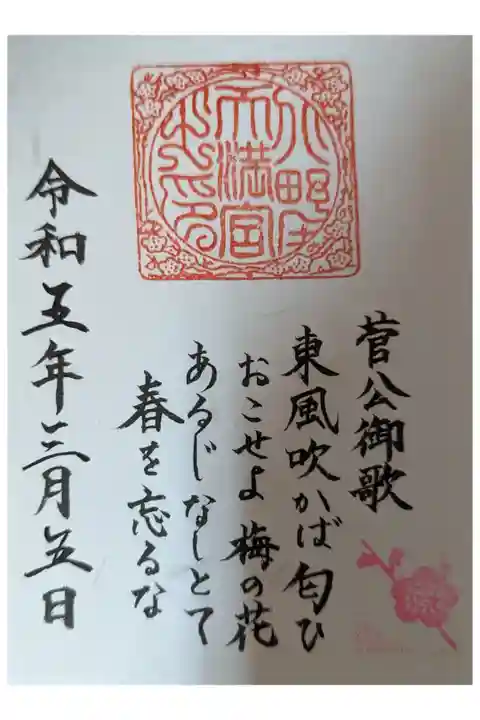 菅公御歌
東風吹かば匂ひ
おこせよ梅の花
あるじなしとて
春を忘るな
令和五年三月五日
天満宮